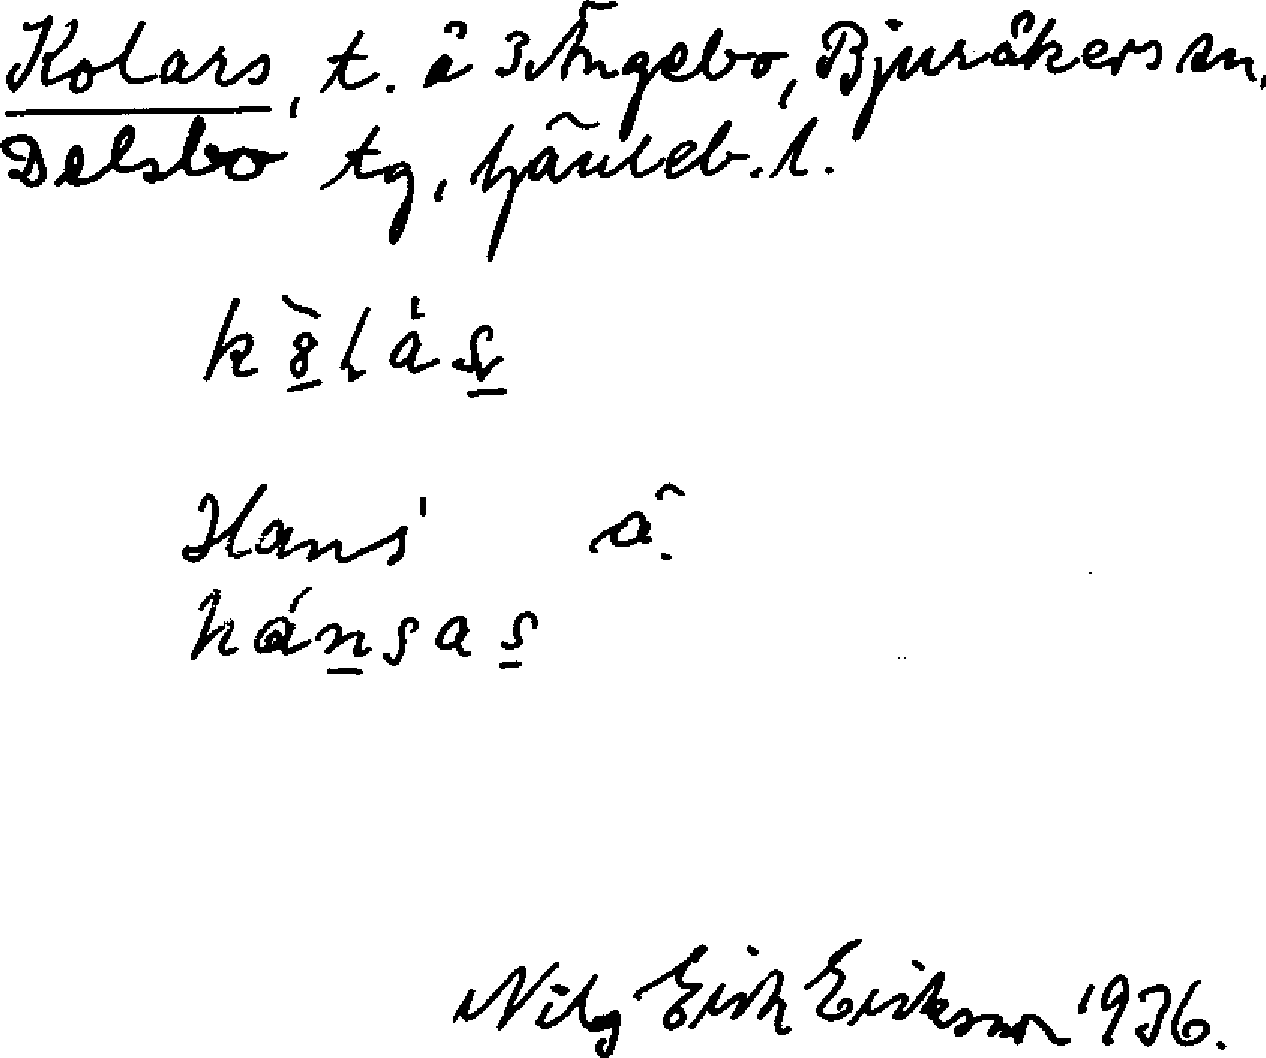 Kolars, t. å 3 Ängebo, Bjuråkers sn,
Delsbo tg, Gävleb. l.
Hans'
Nils Erik Eriksson 1936.